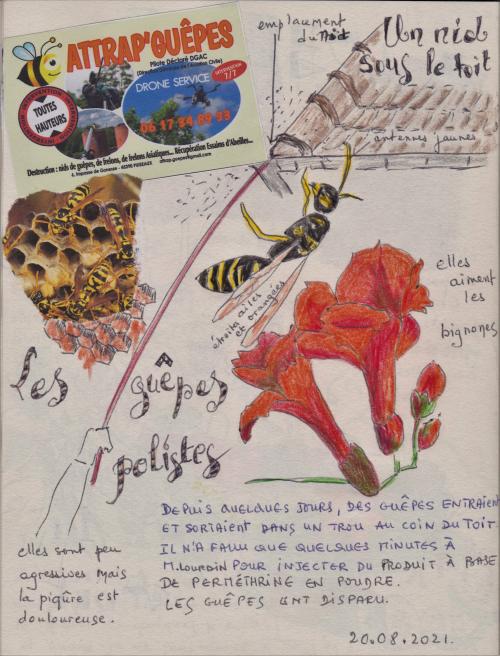 ATTRAP'GUÊPES
Pilote Déclaré DGAC
(Direction Générale de l'Aviation Civile)
DRONE SERVICE
INTERVENTION
7/7
TOUTES
HAUTEURS
06 17 84 89 93
Destruction : nids de guêpes, de frelons, de frelons Asiatiques... Récupération Essaims d'Abeilles...
emplacement
du Nid
Un nid
sous le toit
antennes jaunes
étroites ailes
et orangées
elles
aiment
les
bignones
Les guêpes
polistes
DEPUIS QUELQUES JOURS, DES GUÊPES ENTRAIENT
ET SORTAIENT DANS UN TROU AU COIN DU TOIT.
IL N'A FALLU QUE QUELQUES MINUTES À
M. POUR INJECTER DU PRODUIT À BASE
DE PERMÉTHRINE EN POUDRE.
LES GUÊPES ONT DISPARU.
elles sont peu
agressives mais
la piqûre est
douloureuse.
20.08.2021.